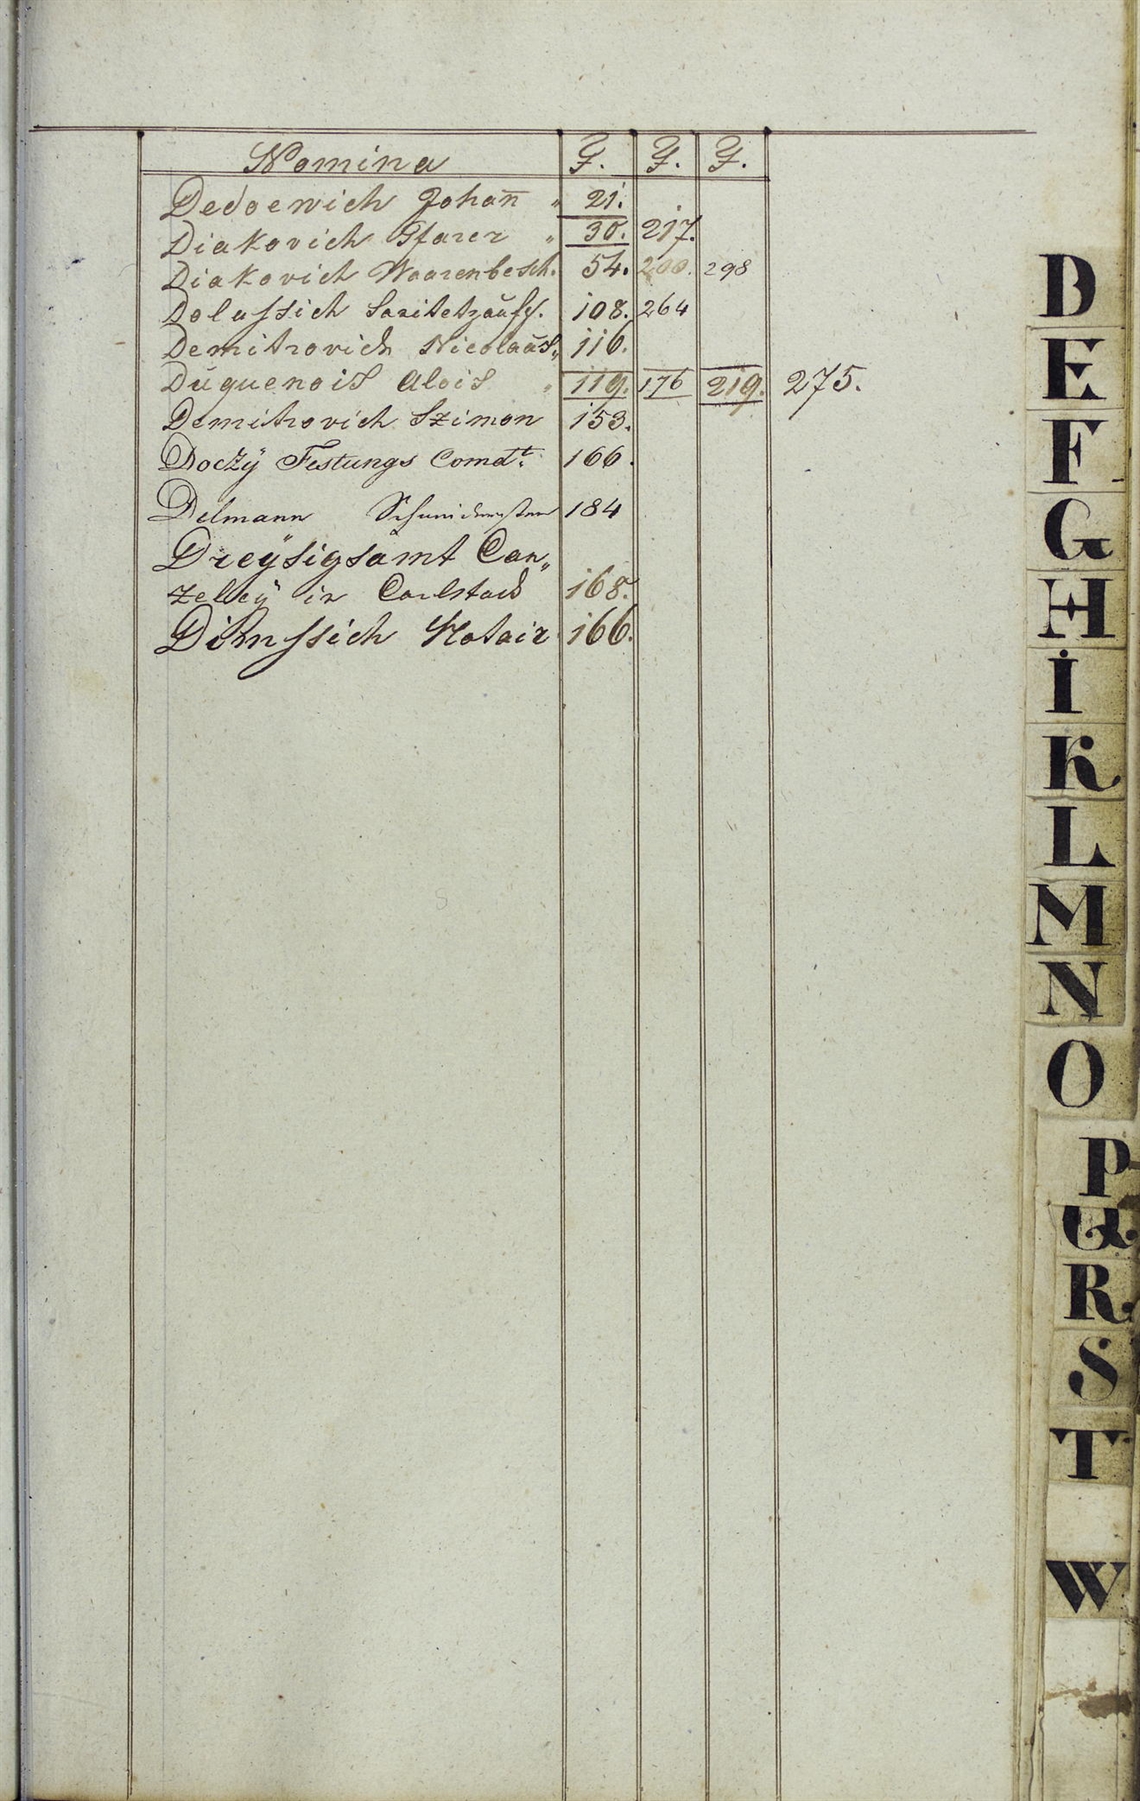 Nomina F. F. F.
Dedoewich Johan̄ „ 21.
Diakovich Pfarer „ 30. 217.
Diakovich Waarenbesch. 54. 200. 298
Dolassich 108. 264
Demitrovich Nicolaŭs „ 116.
Dŭquenois Alois „ 119. 176 219. 275.
Demitrovich Szimon 153.
Doczÿ Festungs Comdt. 166.
Delmann 184
Dreÿsigsamt Can„
zeleÿ in Carlstad 168.
Notair 166.
D
E
F
G
H
I
K
L
M
N
O
P
Q
R
S
T
W